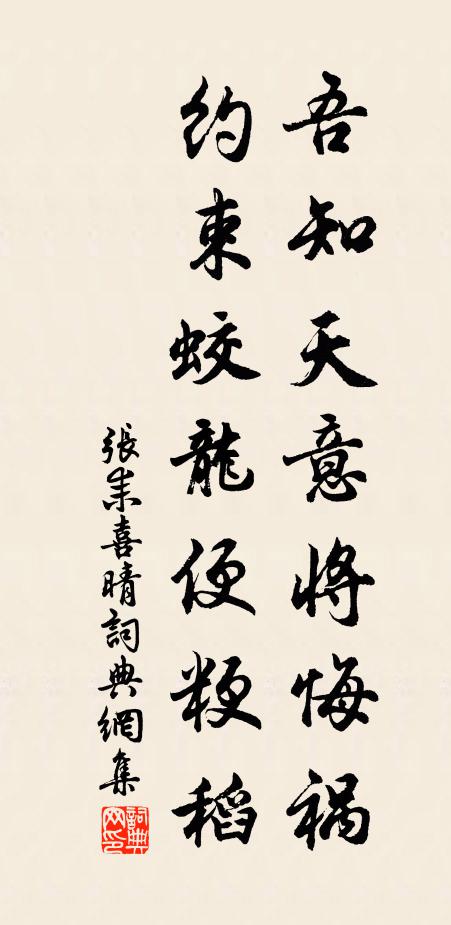 吾知天意将悔祸
约束蛟龍便粳稻
張耒喜晴詞典網集
詞典网印